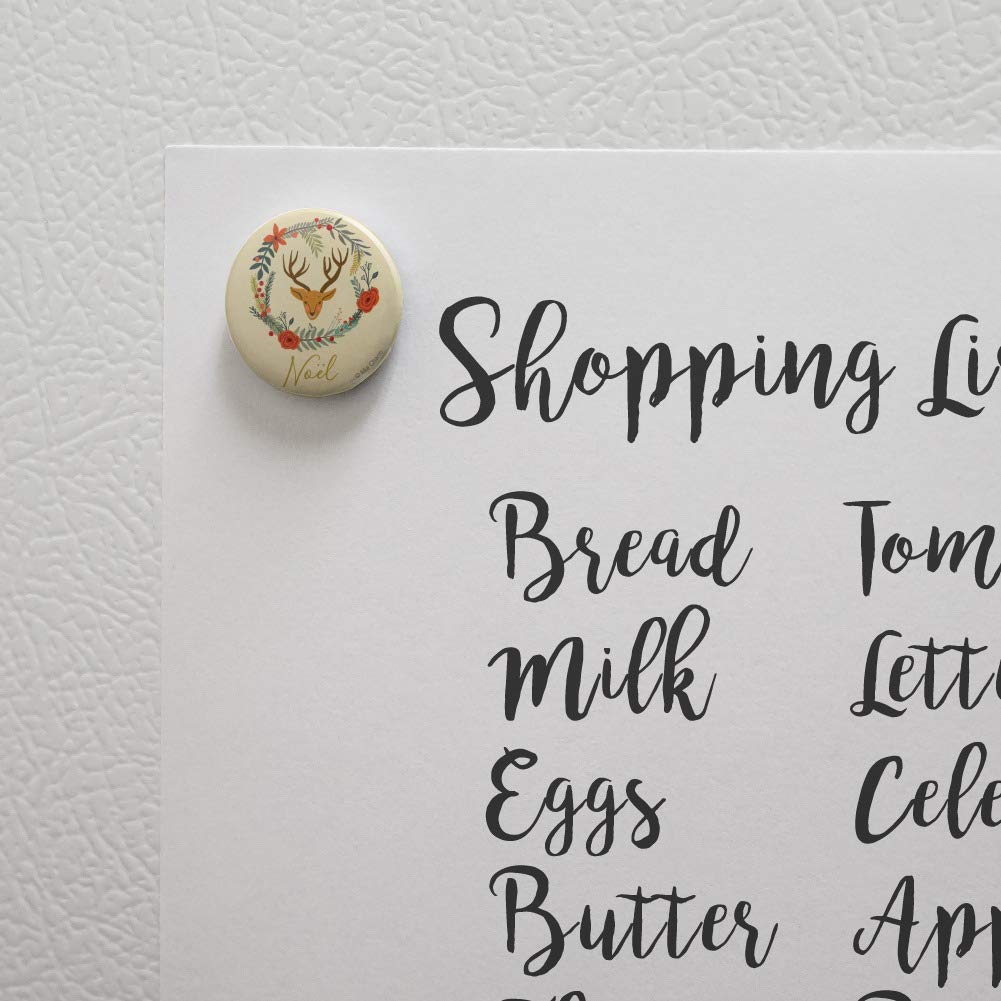 Noël
Shopping Li
Bread Tom
Milk Lett
Eggs Cele
Butter App